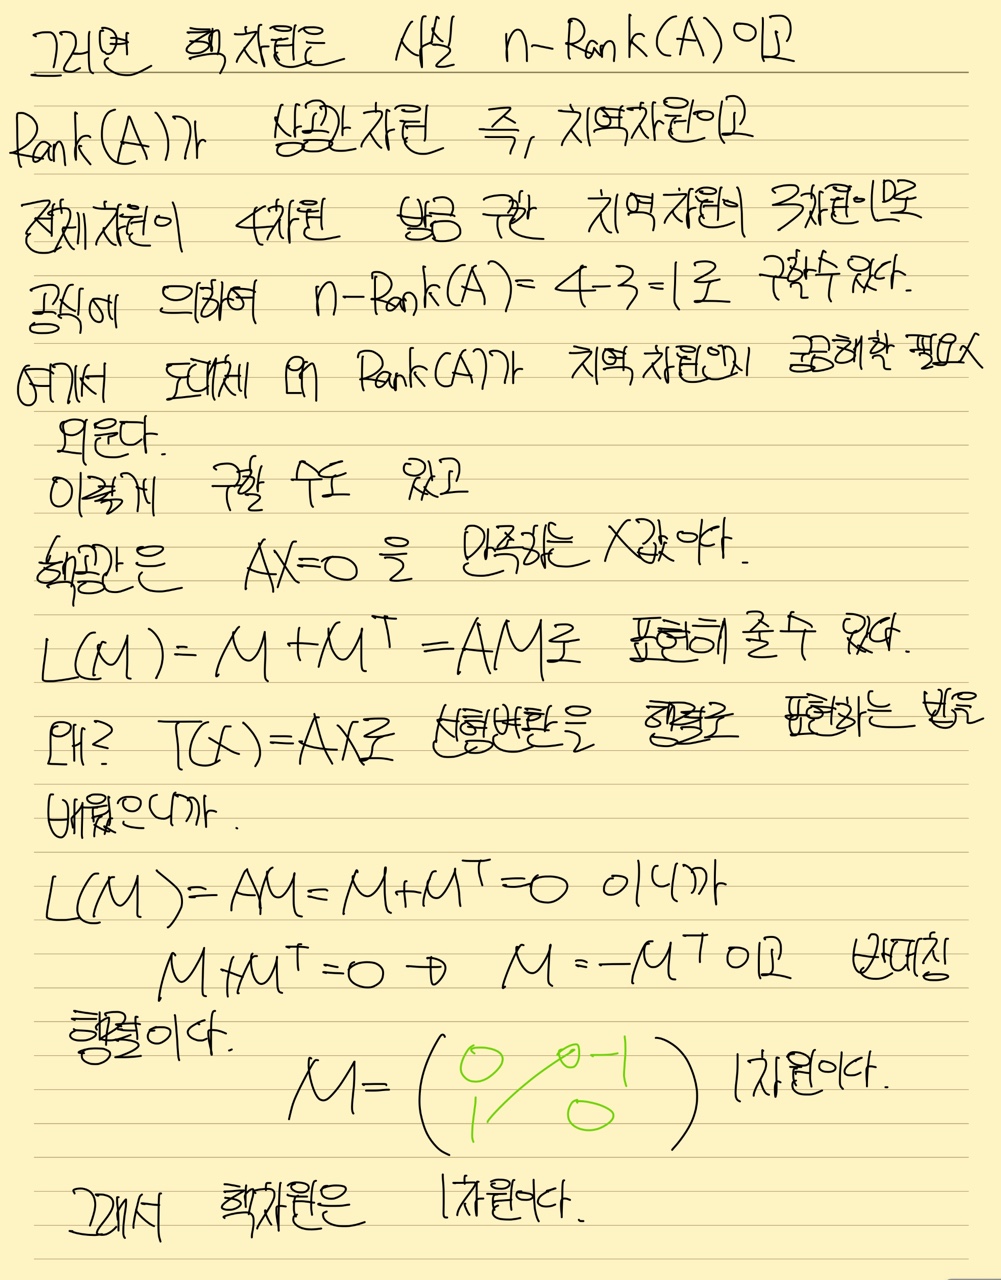 그러면 핵차원은 사실 n-Rank(A)이고
Rank(A)가 상공간차원 즉, 치역차원이고
전체차원이 4차원 방금 구한 치역차원이 3차원이므로
공식에 의하여 n-Rank(A)=4-3=1로 구할수있다.
여기서 도대체 왜 Rank(A)가 치역차원인지 궁금해할 필요X
외운다.
이렇게 구할 수도 있고
핵공간은 AX=0을 만족하는 X값이다.
L(M)=M+Mᵀ=AM로 표현해 줄 수 있다.
왜? T(X)=AX로 선형변환을 행렬로 표현하는 법을
배웠으니까.
L(M)=AM=M+Mᵀ=0 이니까
M+Mᵀ=0 → M=-Mᵀ이고 반대칭
행렬이다.
M=(0 -1
1 0) 1차원이다.
그래서 핵차원은 1차원이다.